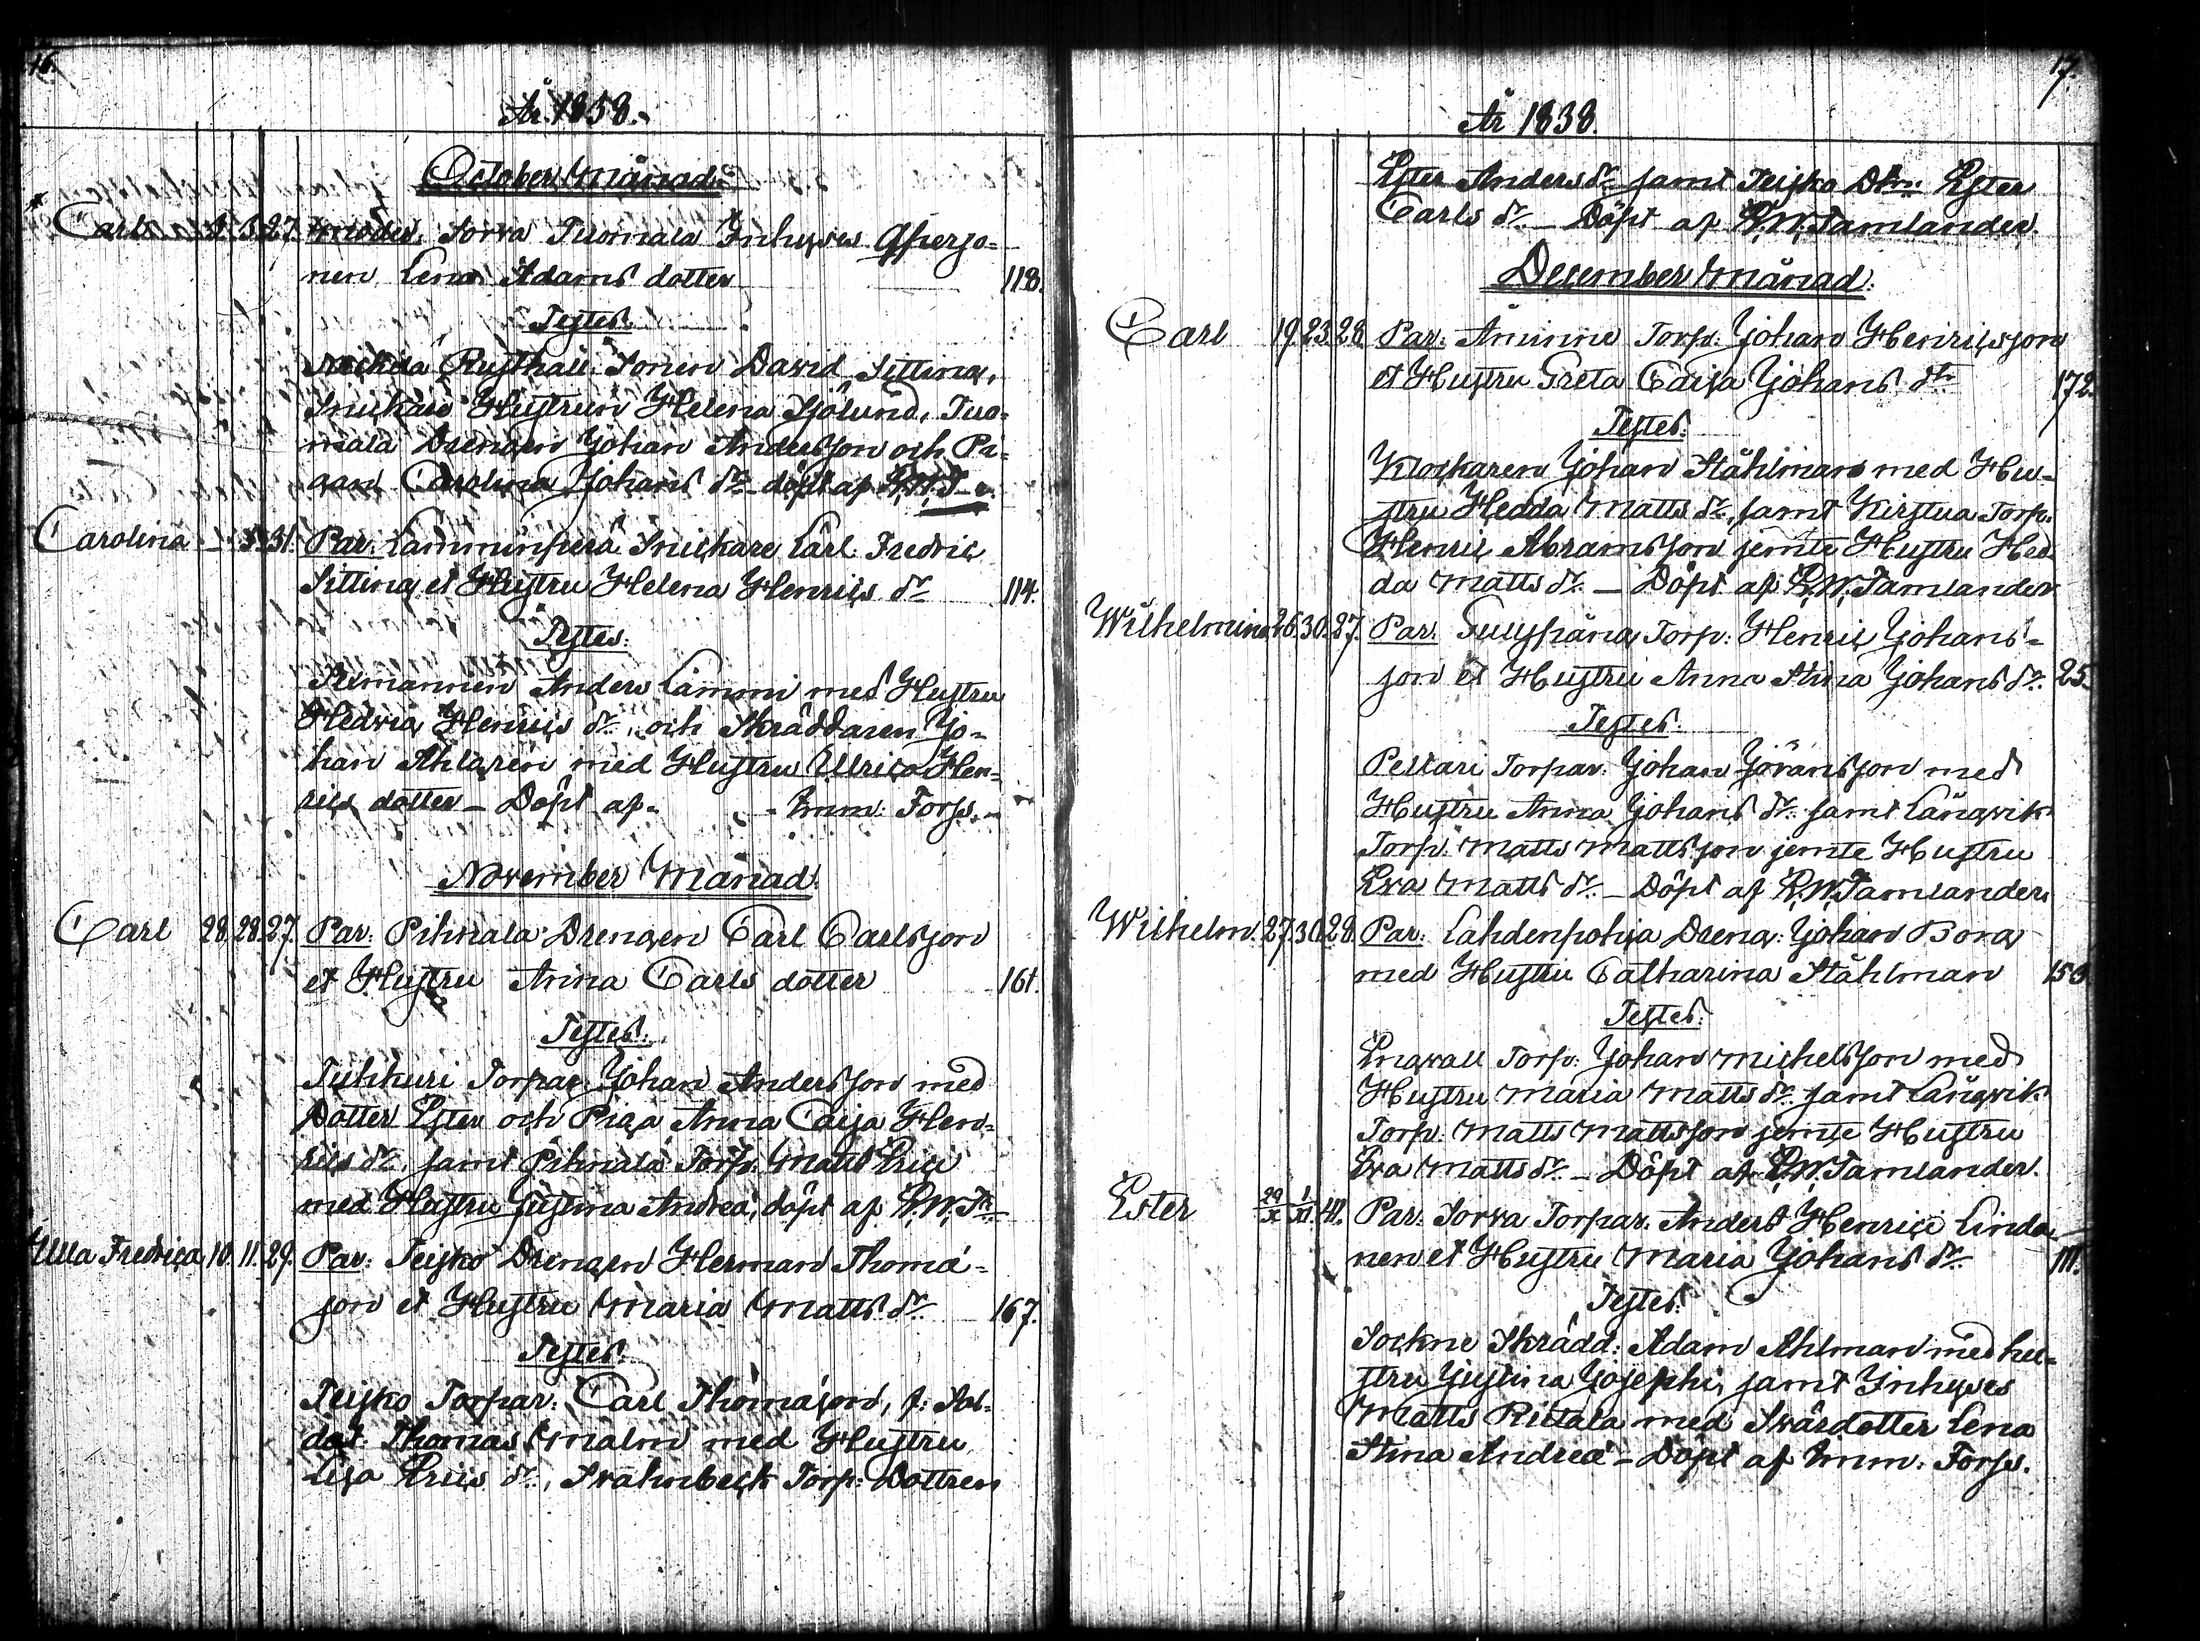 16.
År 1838.
October Månad.
Carl 1. 3. 27. Moder: Torra Tuomala Inhyses Asperjo-
nen Lena Adams dotter 118.
Testes.
Rusthåll. Sonen David Sitting,
Snickare Hustrun Helena Sjölund, Tuo-
mala Drengen Johan Andersson och Pi-
gan Carolina Johans dr döpt af
Carolina 31. Par. Lamminperä Snickare Carl Fredric
Sitting et Hustru Helena Henrics dr 114.
Testes.
Anders Lammi med Hustru
Hedvig Henrics dr och Skräddaren Jo-
han Ahlgren med Hustru Ulrica Hen-
rics dotter – Döpt af Imm: Forss.
November Månad.
Carl 28. 28. 27. Par: Pihnala Drengen Carl Carlsson
et Hustru Anna Carls dotter 161.
Testes.
Tuhkuri Torpar. Johan Andersson med
Dotter Ester och Piga Anna Caisa Hen-
rics dr, samt Pihnala Torp. Matts Erici
med Hustru Justina Andreä, döpt af E.W.T
Ulla Fredrica 10. 11. 29. Par: Teijko Drengen Herman Thomä-
son et Hustru Maria Matts dr 167.
Testes.
Teijko Torpar. Carl Thomäson, f: Sol-
dat. Thomas Malm med Hustru
Lisa Erics dr, Svahnbeck Torp: Dottren
17.
År 1838.
Ester Anders dr samt Teijko Dtrn: Ester
Carls dr – Döpt af E.W. Tamlander.
December Månad.
Carl 19. 23. 28. Par: Åminne Torp: Johan Henricsson
et Hustru Greta Caisa Johans dr 172.
Testes.
Klockaren Johan Ståhlman med Hu-
stru Hedda Matts dr, samt Kirstua Torp.
Henric Abramsson jemte Hustru Hed
da Matts dr. – Döpt af E.W. Tamlander
Wilhelmina 26. 30. 27. Par. Torp: Henric Johans-
son et Hustru Anna Stina Johans dr. 25.
Testes.
Pellari Torpar. Johan Jöransson med
Hustru Anna Johans dr. samt Långvik
Torp. Matts Mattsson jemte Hustru
Eva Matts dr. – Döpt af E.W. Tamlander
Wilhelm. 27. 30. 28. Par: Lahdenpohja Dreng: Johan Borg
med Hustru Catharina Ståhlman 153
Testes.
Engvall Torp: Johan Michelsson med
Hustru Maria Matts dr. samt Långvik
Torp. Matts Mattsson jemte Hustru
Eva Matts dr. – Döpt af E.W. Tamlander.
Ester 29/X 1/XI 41. Par. Torra Torpar. Anders Henrici Linda-
nen et Hustru Maria Johans dr. 111.
Testes.
Sockne Skrädd: Adam Ahlman med hu-
stru Justina Josephi, samt Inhyses
Matts Rietala med Svärdotter Lena
Stina Andreä – Döpt af Imm. Forss.